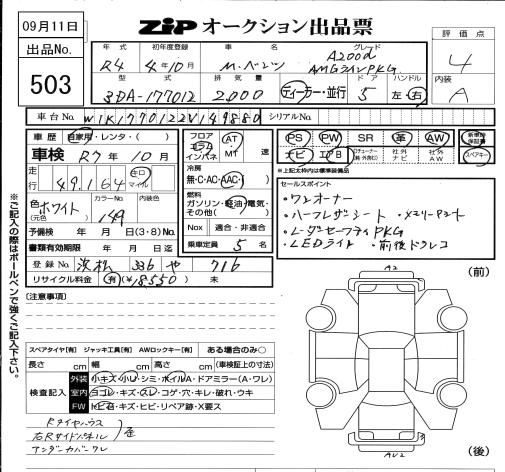 09月11日
ZIP オークション出品票
出品No.
503
年式 初年度登録 車名 グレード
R4 4年10月 M・ベンツ A200d AMGラインPKG
型式 排気量 ドア ハンドル
3DA-177012 2,000 ディーラー・並行 5 左・右
評価点
4
内装
A
車台No. W1K1770122V149880 シリアルNo.
車歴 自家用・レンタ・( )
車検 R7年10月
走行 49,164 キロ マイル
色 ホワイト (元色) カラーNo. 149 内装色
予備検 年 月 日(3・8)Mo.
書類有効期限 年 月 日迄
登録No. 浜松 336 や 716
リサイクル料金 有(¥18,550) 未
フロア コラム インパネ AT MT 速
冷房
無・C・AC・AAC
燃料
ガソリン・軽油・電気・その他( )
Nox 適合・非適合
乗車定員 5 名
PS PW SR 革 AW 新車時保証書
ナビ エアB 社外ナビ 社外AW スペアキー
※上記太枠内は標準装備品
セールスポイント
・ワンオーナー
・ハーフレザーシート ・メモリーP.シート
・レーダーセーフティPKG
・LEDライト ・前後ドラレコ
[注意事項]
スペアタイヤ[有] ジャッキ工具[有] AWロックキー[有] ある場合のみ○
長さ cm 幅 cm 高さ cm (車検証上の寸法)
検査記入
外装 小キズ・小U・シミ・ホイルA・ドアミラー(A・ワレ)
室内 ヨゴレ・キズ・スレ・コゲ・穴・キレ・破れ・ウキ
FW トビ石・キズ・ヒビ・リペア跡・X要ス
Rタイヤハウス
右Rサイドパネル 歪
アンダーカバーワレ
※ご記入の際はボールペンで強くご記入下さい。
(前)
A2
(後)
AU2